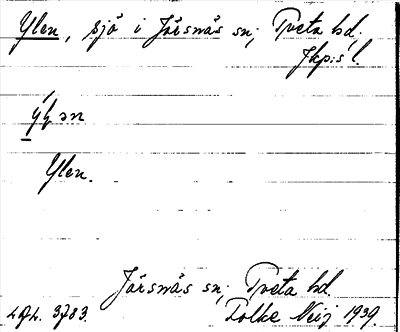 Ylen, sjö i Järsnäs sn, Tveta hd,
Jkp:s l.
Ylen.
Järsnäs sn, Tveta hd.
3783. Folke Neij 1939